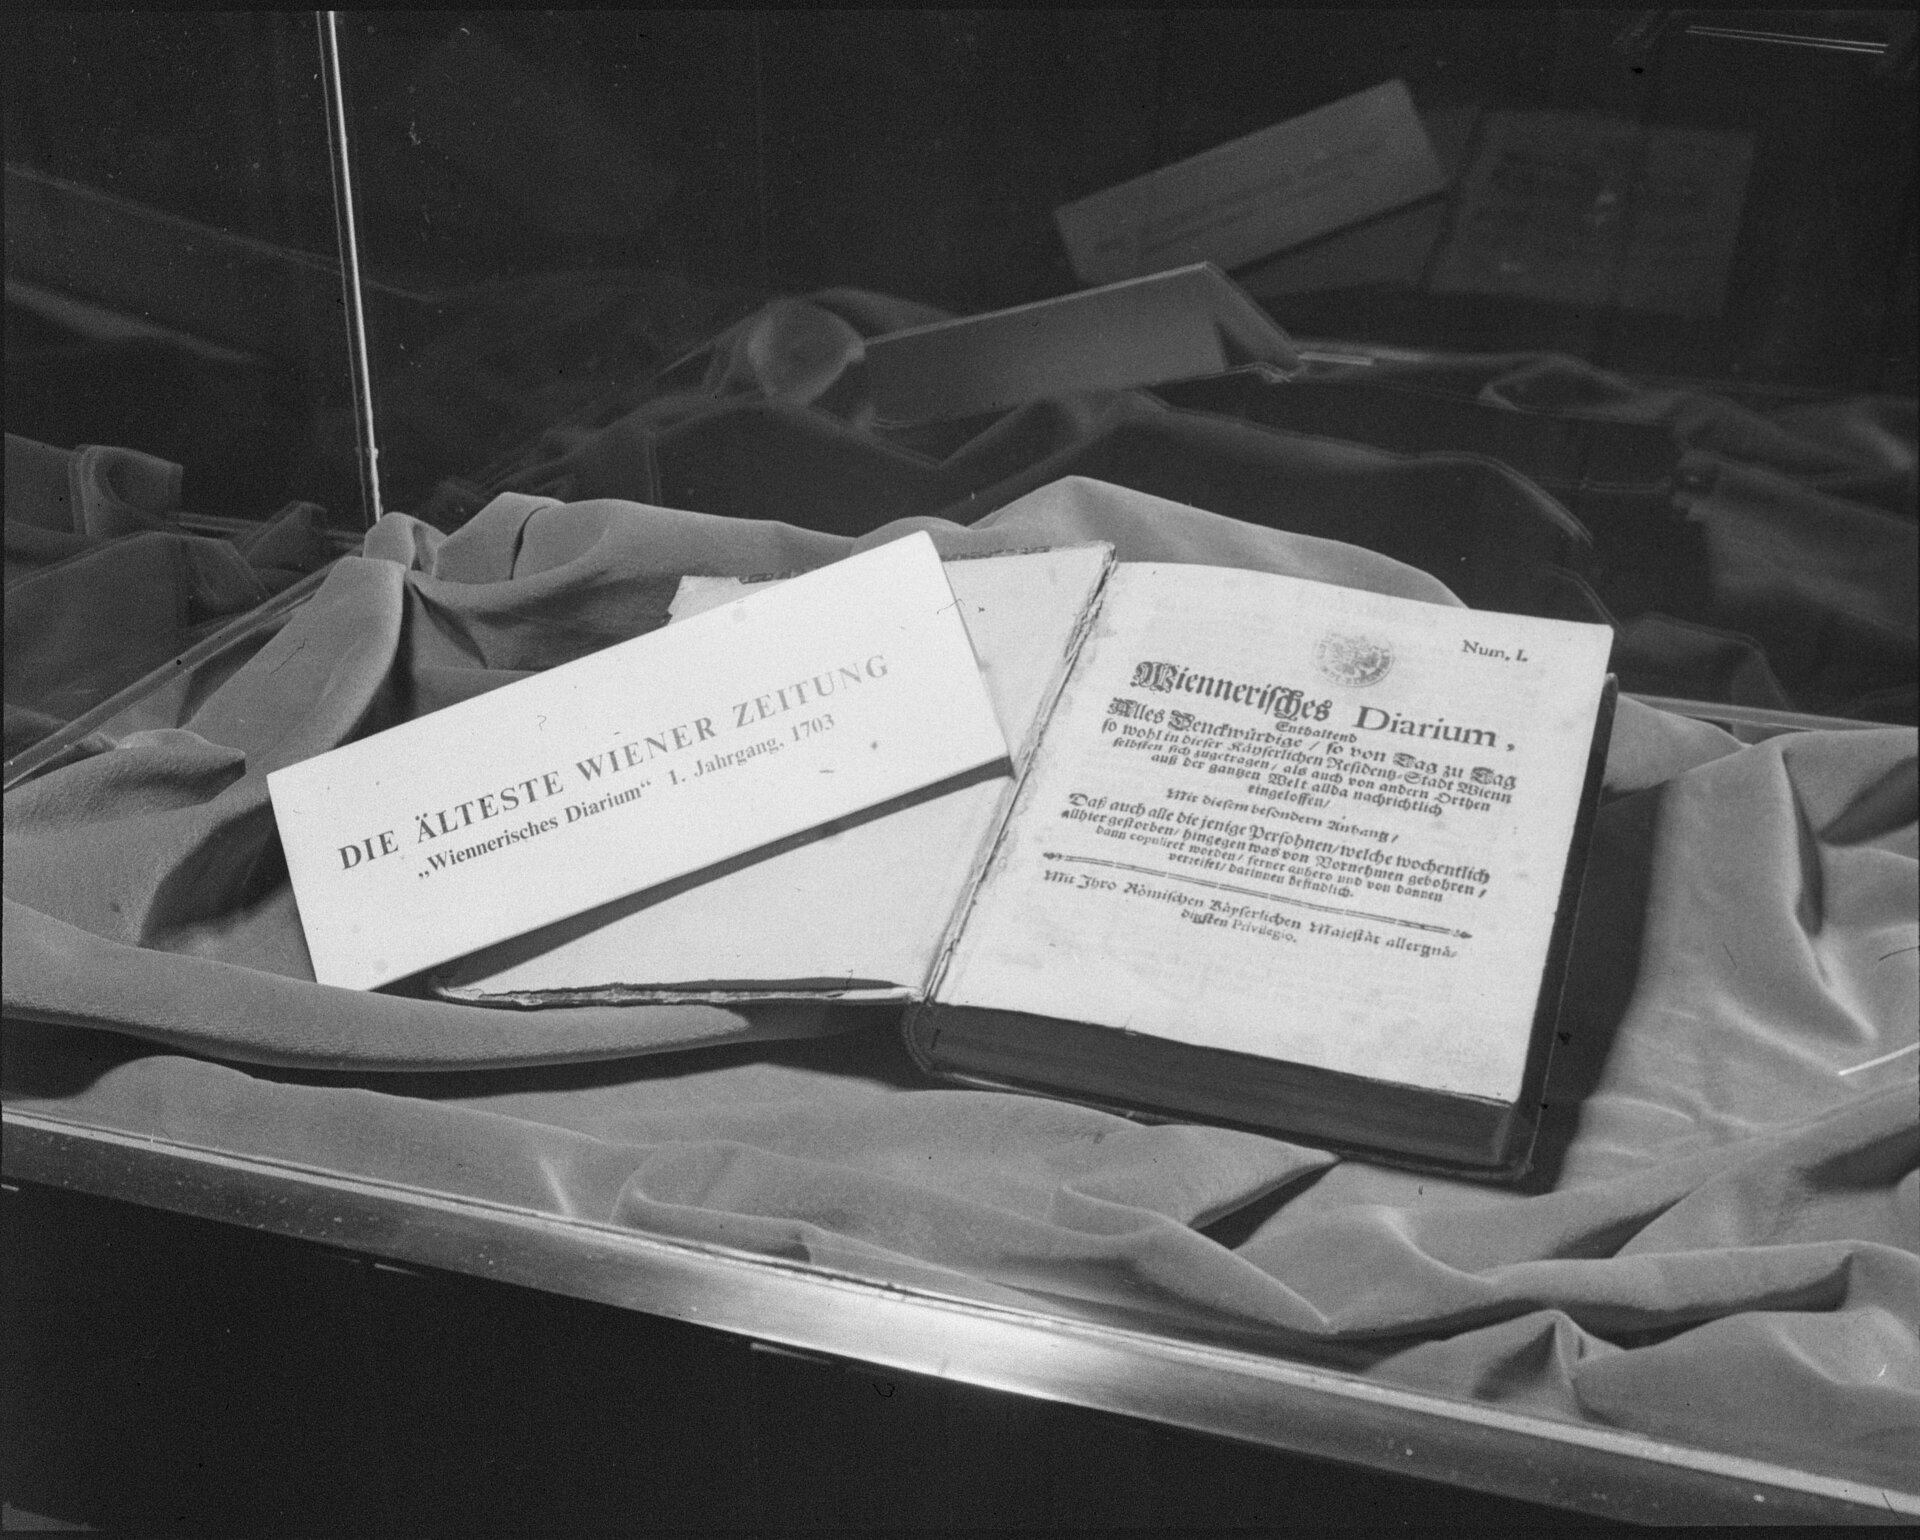 DIE ÄLTESTE WIENER ZEITUNG
„Wiennerisches Diarium“ 1. Jahrgang, 1703
Num. I.
Wiennerisches Diarium,
Enthaltend
Alles Denckwürdige / so von Tag zu Tag
so wohl in dieser Käyserlichen Residentz-Stadt Wienn
selbsten sich zugetragen / als auch von andern Orthen
auß der gantzen Welt allda nachrichtlich
eingeloffen /
Mit diesem besondern Anhang /
Daß auch alle die jenige Persohnen / welche wochentlich
allhier gestorben / hingegen was von Vornehmen gebohren /
dann copuliret worden / ferner anhero und von dannen
verreiset / darinnen befindlich.
Mit Ihro Römischen Käyserlichen Majestät allergnä-
digsten Privilegio.